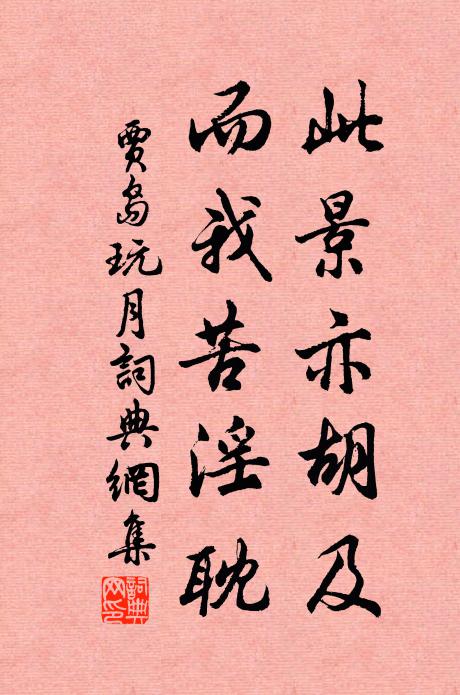 此景亦胡及
而我苦淫耽
賈島玩月詞典網集
詞典網印